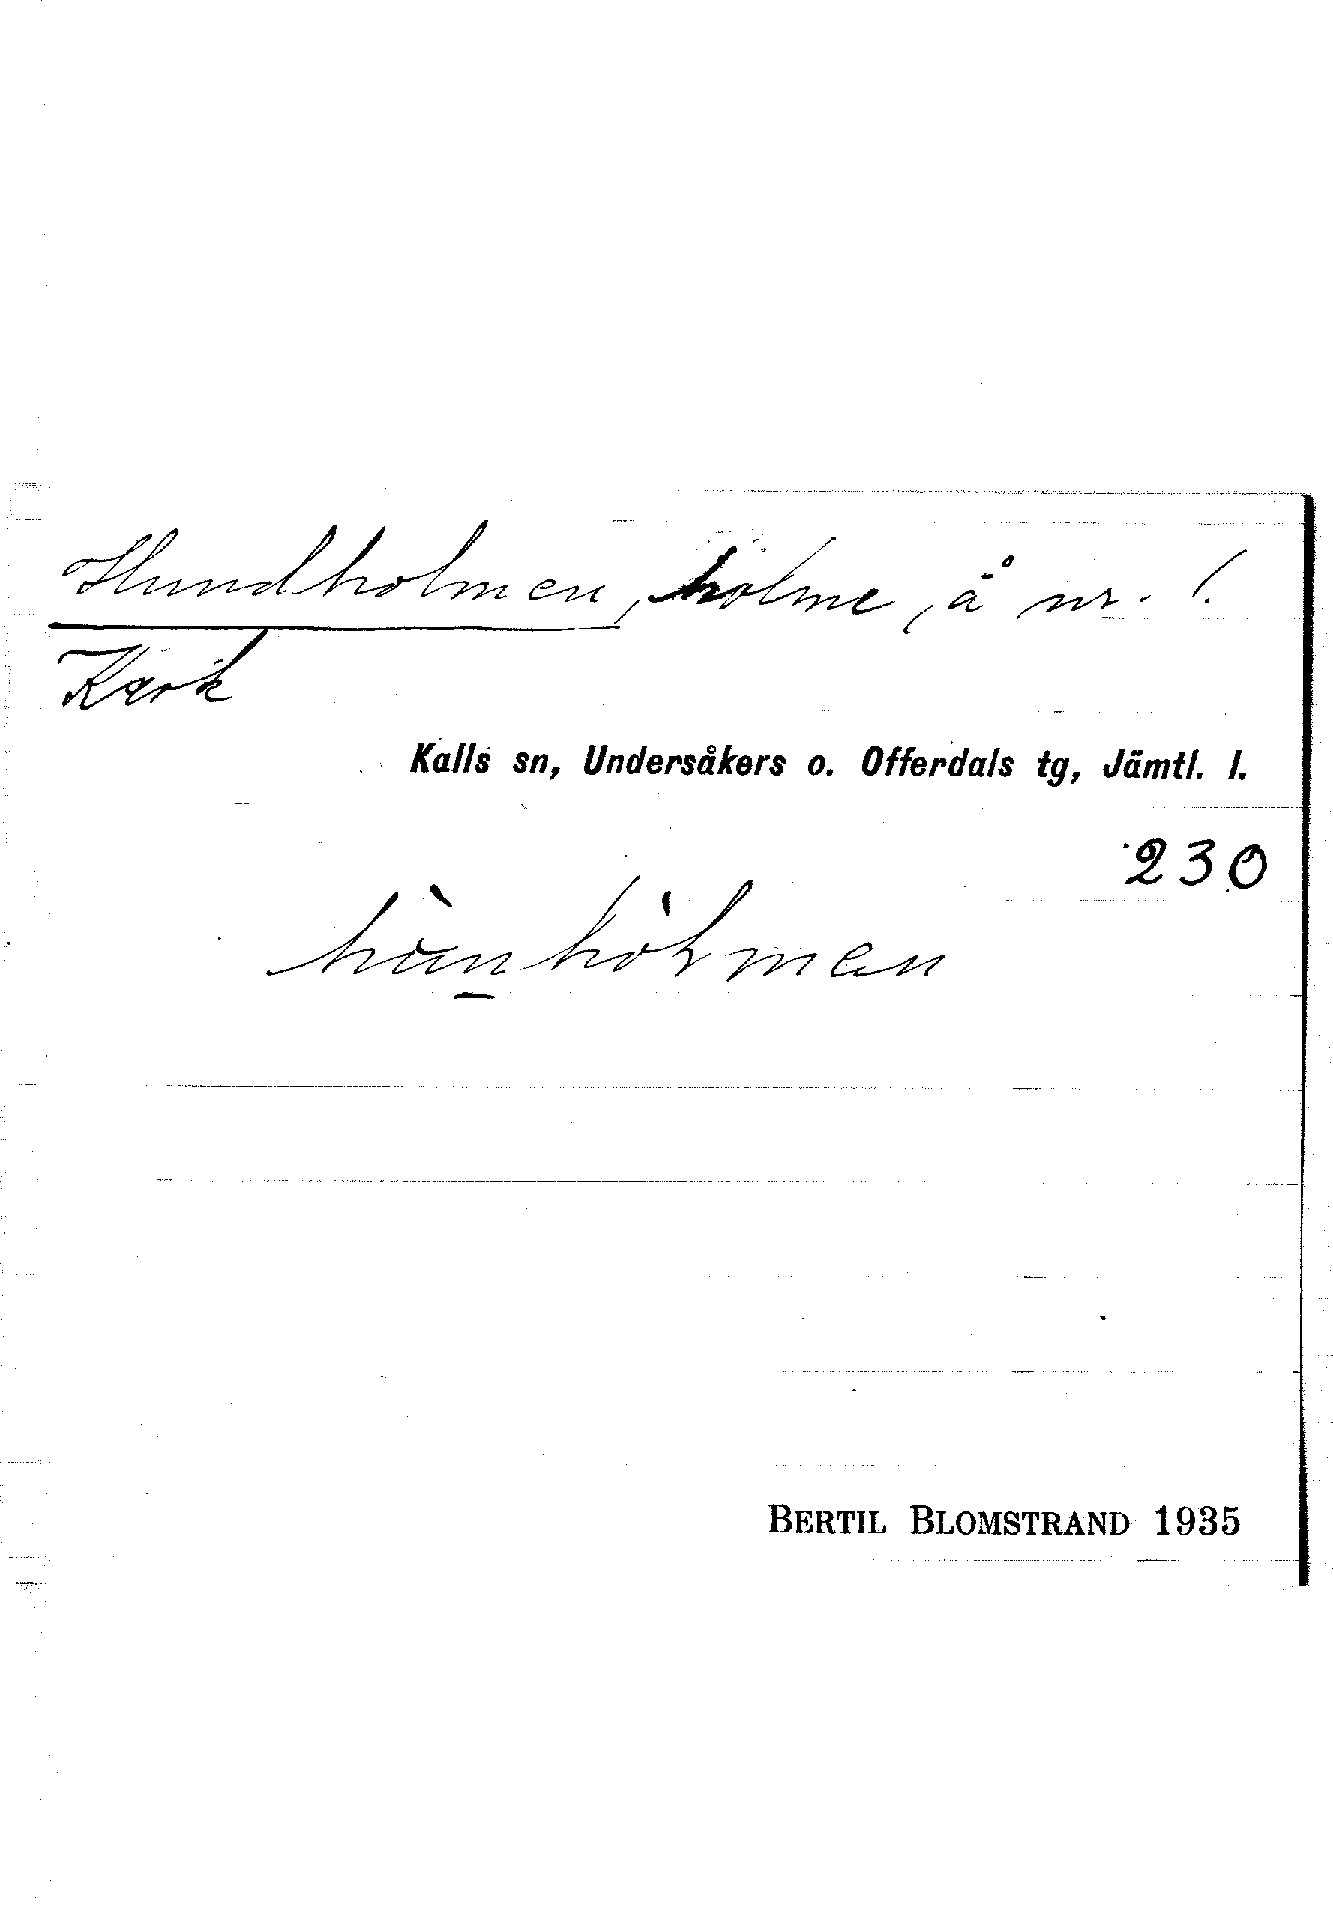 Hundholmen, holme, å nr. 1.
Kark
Kalls sn, Undersåkers o. Offerdals tg, Jämtl. l.
230
BERTIL BLOMSTRAND 1935